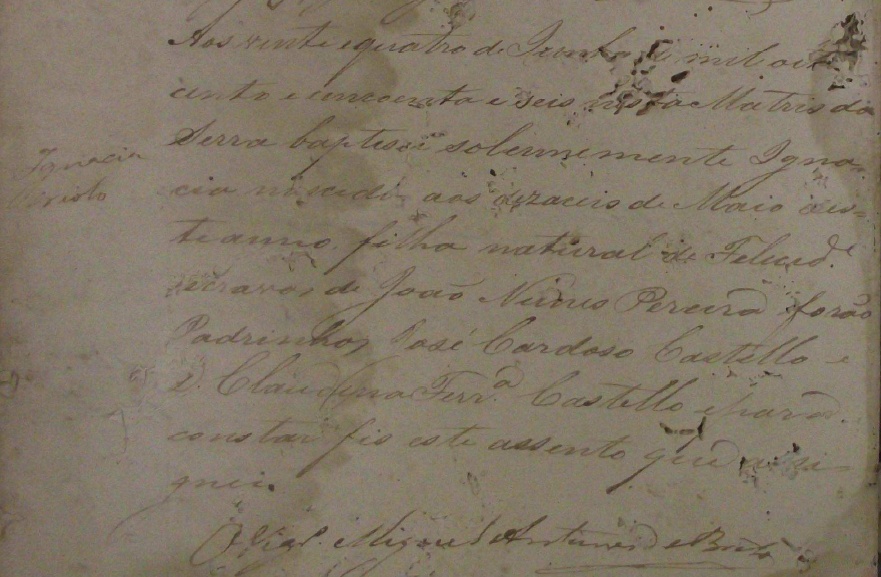 Aos vinte e quatro de Junho de mil oito
cento e cincoenta e seis nesta Matris da
Serra baptisei solennemente Igna
Ignacia
cia nascida aos dezaceis de Maio des=
te anno, filha natural de Felicid.e
escravos de João Nunes Pereira forão
Padrinhos José Cardoso Castello e
D. Claudina Ferr.a Castello e para
constar fis este assento que assi
gnei.
O Vig.o Miguel Antunes de Brito